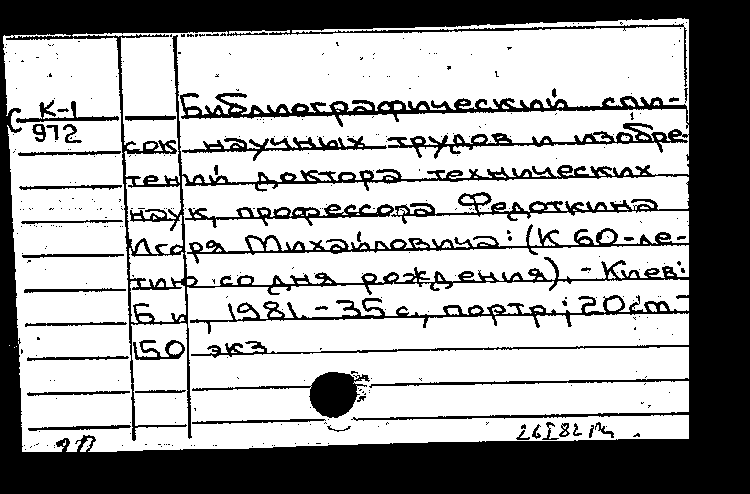 С К-1
972
Библиографический спи-
сок научных трудов и изобре
тений доктора технических
наук, профессора Федоткина
Игоря Михайловича: (К 60-ле-
тию со дня рождения). - Киев:
Б. и., 1981. - 35 с., портр.; 20 см. -
150 экз.
26 I 82